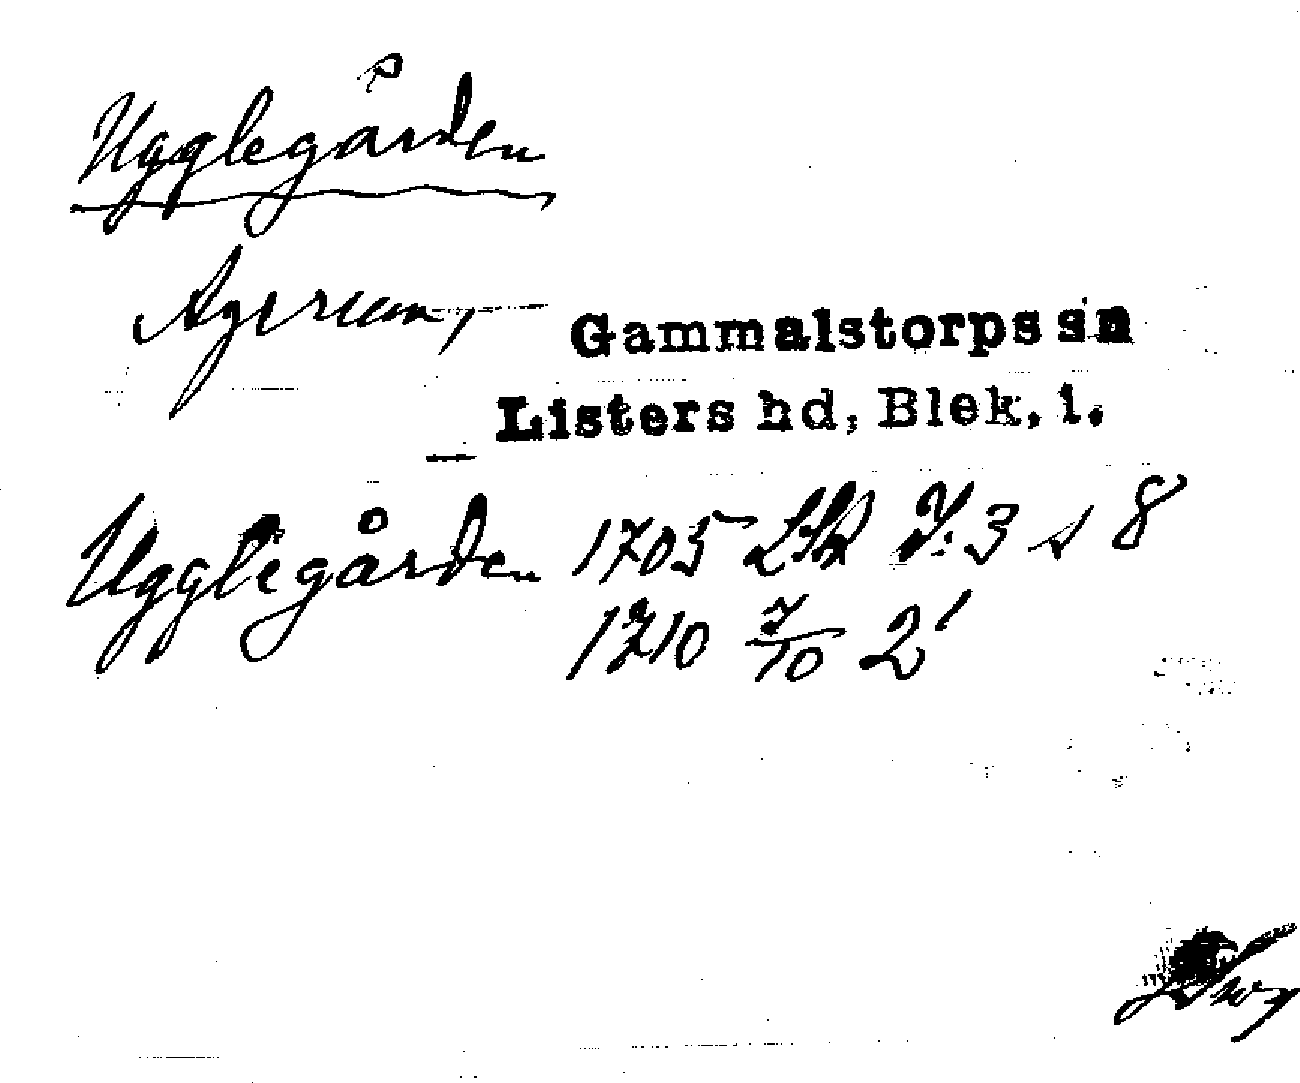 Ugglegården
Agerum,
Gammalstorps sn
Listers hd, Blek. l.
Ugglegården 1705 LSk F: 3 s 8
1710 7/10 2'